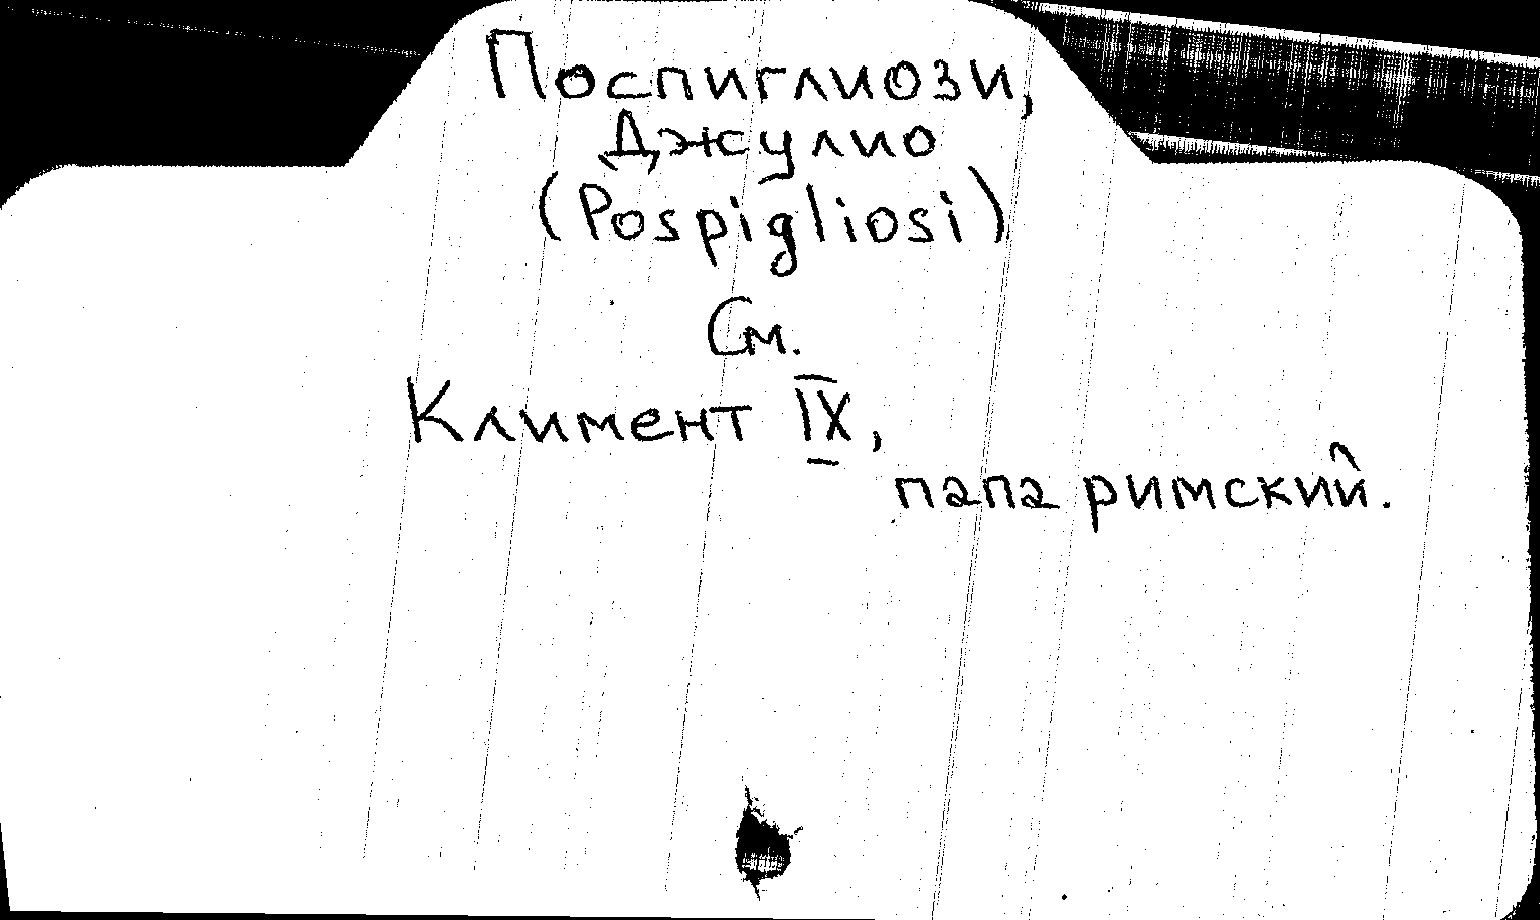 Поспиглиози,
Джулио
(Pospigliosi)
См.
Климент IX,
папа римский.